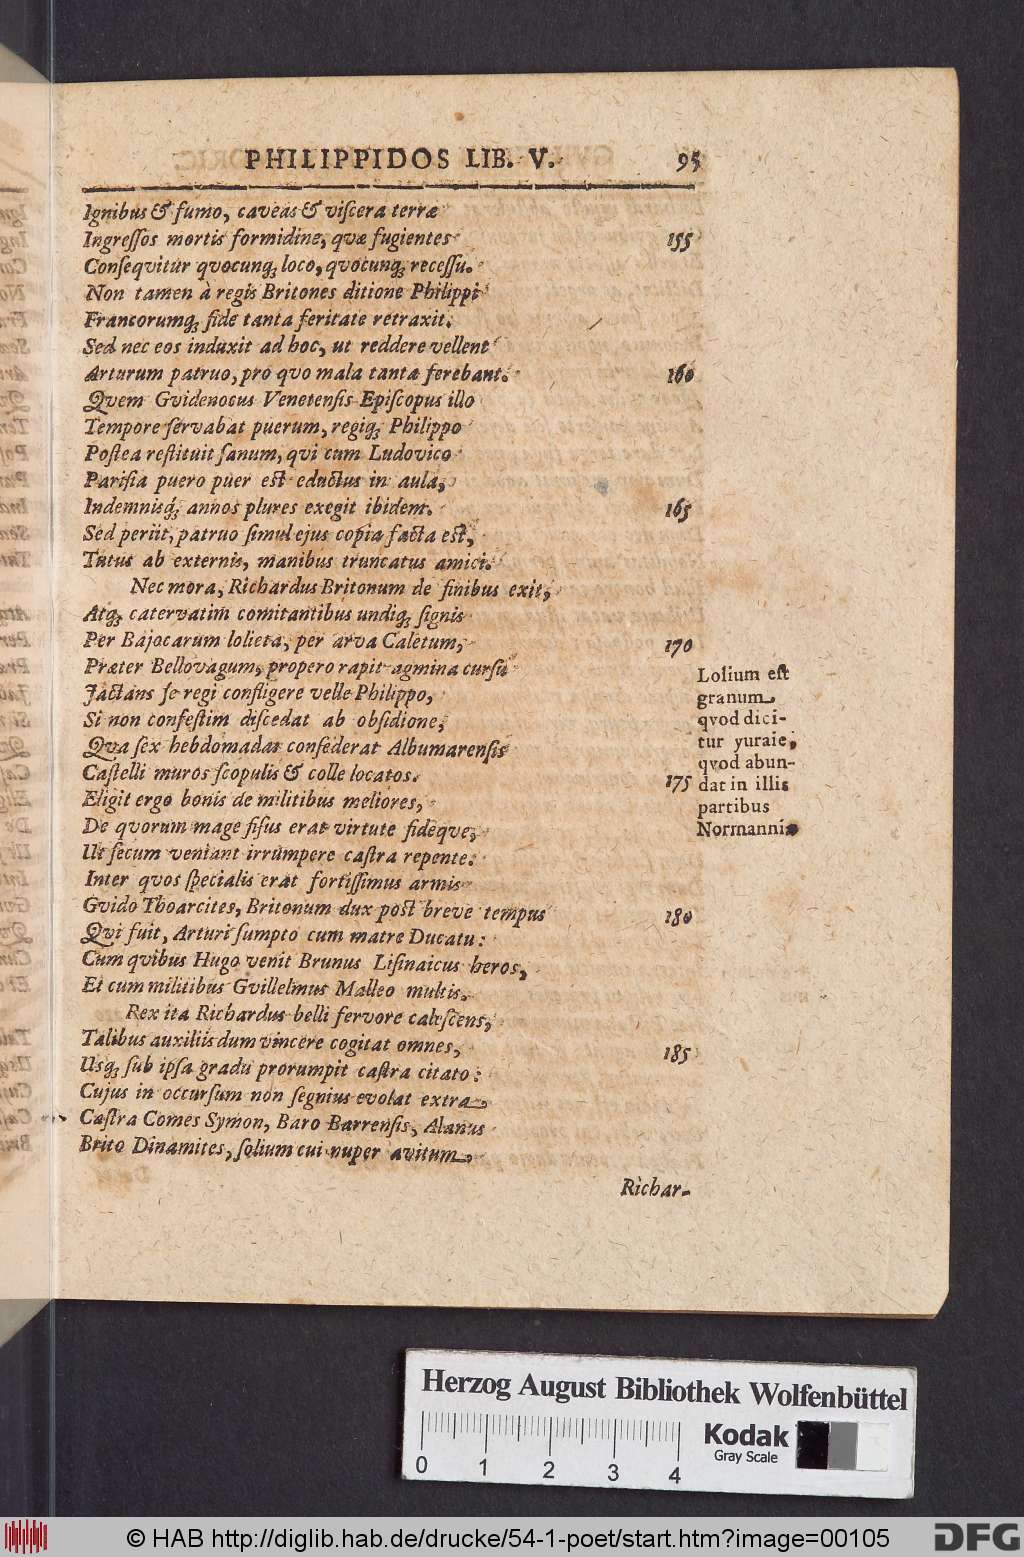 PHILIPPIDOS LIB. V. 95
Ignibus & fumo, caveas & viſcera terræ
Ingreſſos mortis formidine, quæ fugientes 155
Conſequitur quocunq; loco, quocunq; receſſu.
Non tamen à regis Britones ditione Philippi
Francorumq; fide tanta feritate retraxit.
Sed nec eos induxit ad hoc, ut reddere vellent
Arturum patruo, pro quo mala tanta ferebant. 160
Quem Gvidenocus Venetenſis Epiſcopus illo
Tempore ſervabat puerum, regiq; Philippo
Poſtea reſtituit ſanum, qui cum Ludovico
Pariſia puero puer eſt eductus in aula,
Indemnisq́; annos plures exegit ibidem. 165
Sed periit, patruo ſimul ejus copia facta eſt,
Tutus ab externis, manibus truncatus amici.
Nec mora, Richardus Britonum de finibus exit,
Atq; catervatim comitantibus undiq; ſignis
Per Bajocarum lolieta, per arva Caletum, 170
Præter Bellovagum, propero rapit agmina curſu
Jactans ſe regi confligere velle Philippo,
Si non confeſtim diſcedat ab obſidione,
Qua ſex hebdomadas conſederat Albumarenſis
Caſtelli muros ſcopulis & colle locatos. 175
Eligit ergo bonis de militibus meliores,
De qvorum mage fiſus erat virtute fideqve,
Ut ſecum veniant irrumpere caſtra repente.
Inter qvos ſpecialis erat fortiſſimus armis
Gvido Thoarcites, Britonum dux poſt breve tempus 180
Qvi fuit, Arturi ſumpto cum matre Ducatu:
Cum qvibus Hugo venit Brunus Liſinaicus heros,
Et cum militibus Gvillelmus Malleo multis.
Rex ita Richardus belli fervore caleſcens,
Talibus auxiliis dum vincere cogitat omnes, 185
Usq; ſub ipſa gradu prorumpit caſtra citato:
Cujus in occurſum non ſegnius evolat extra
Caſtra Comes Symon, Baro Barrenſis, Alanus
Brito Dinamites, ſolium cui nuper avitum
Richar-
Lolium eſt
granum
qvod dici-
tur yuraie,
qvod abun-
dat in illis
partibus
Normanniæ
Herzog August Bibliothek Wolfenbüttel
Kodak
Gray Scale
0 1 2 3 4
© HAB http://diglib.hab.de/drucke/54-1-poet/start.htm?image=00105
DFG